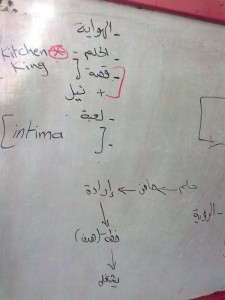 - الهواية
- الحلم
Kitchen
King
- قصة
+ نيل
- لعبة
-
[intima
حلم ← حافز ← إرادة
- الرؤية